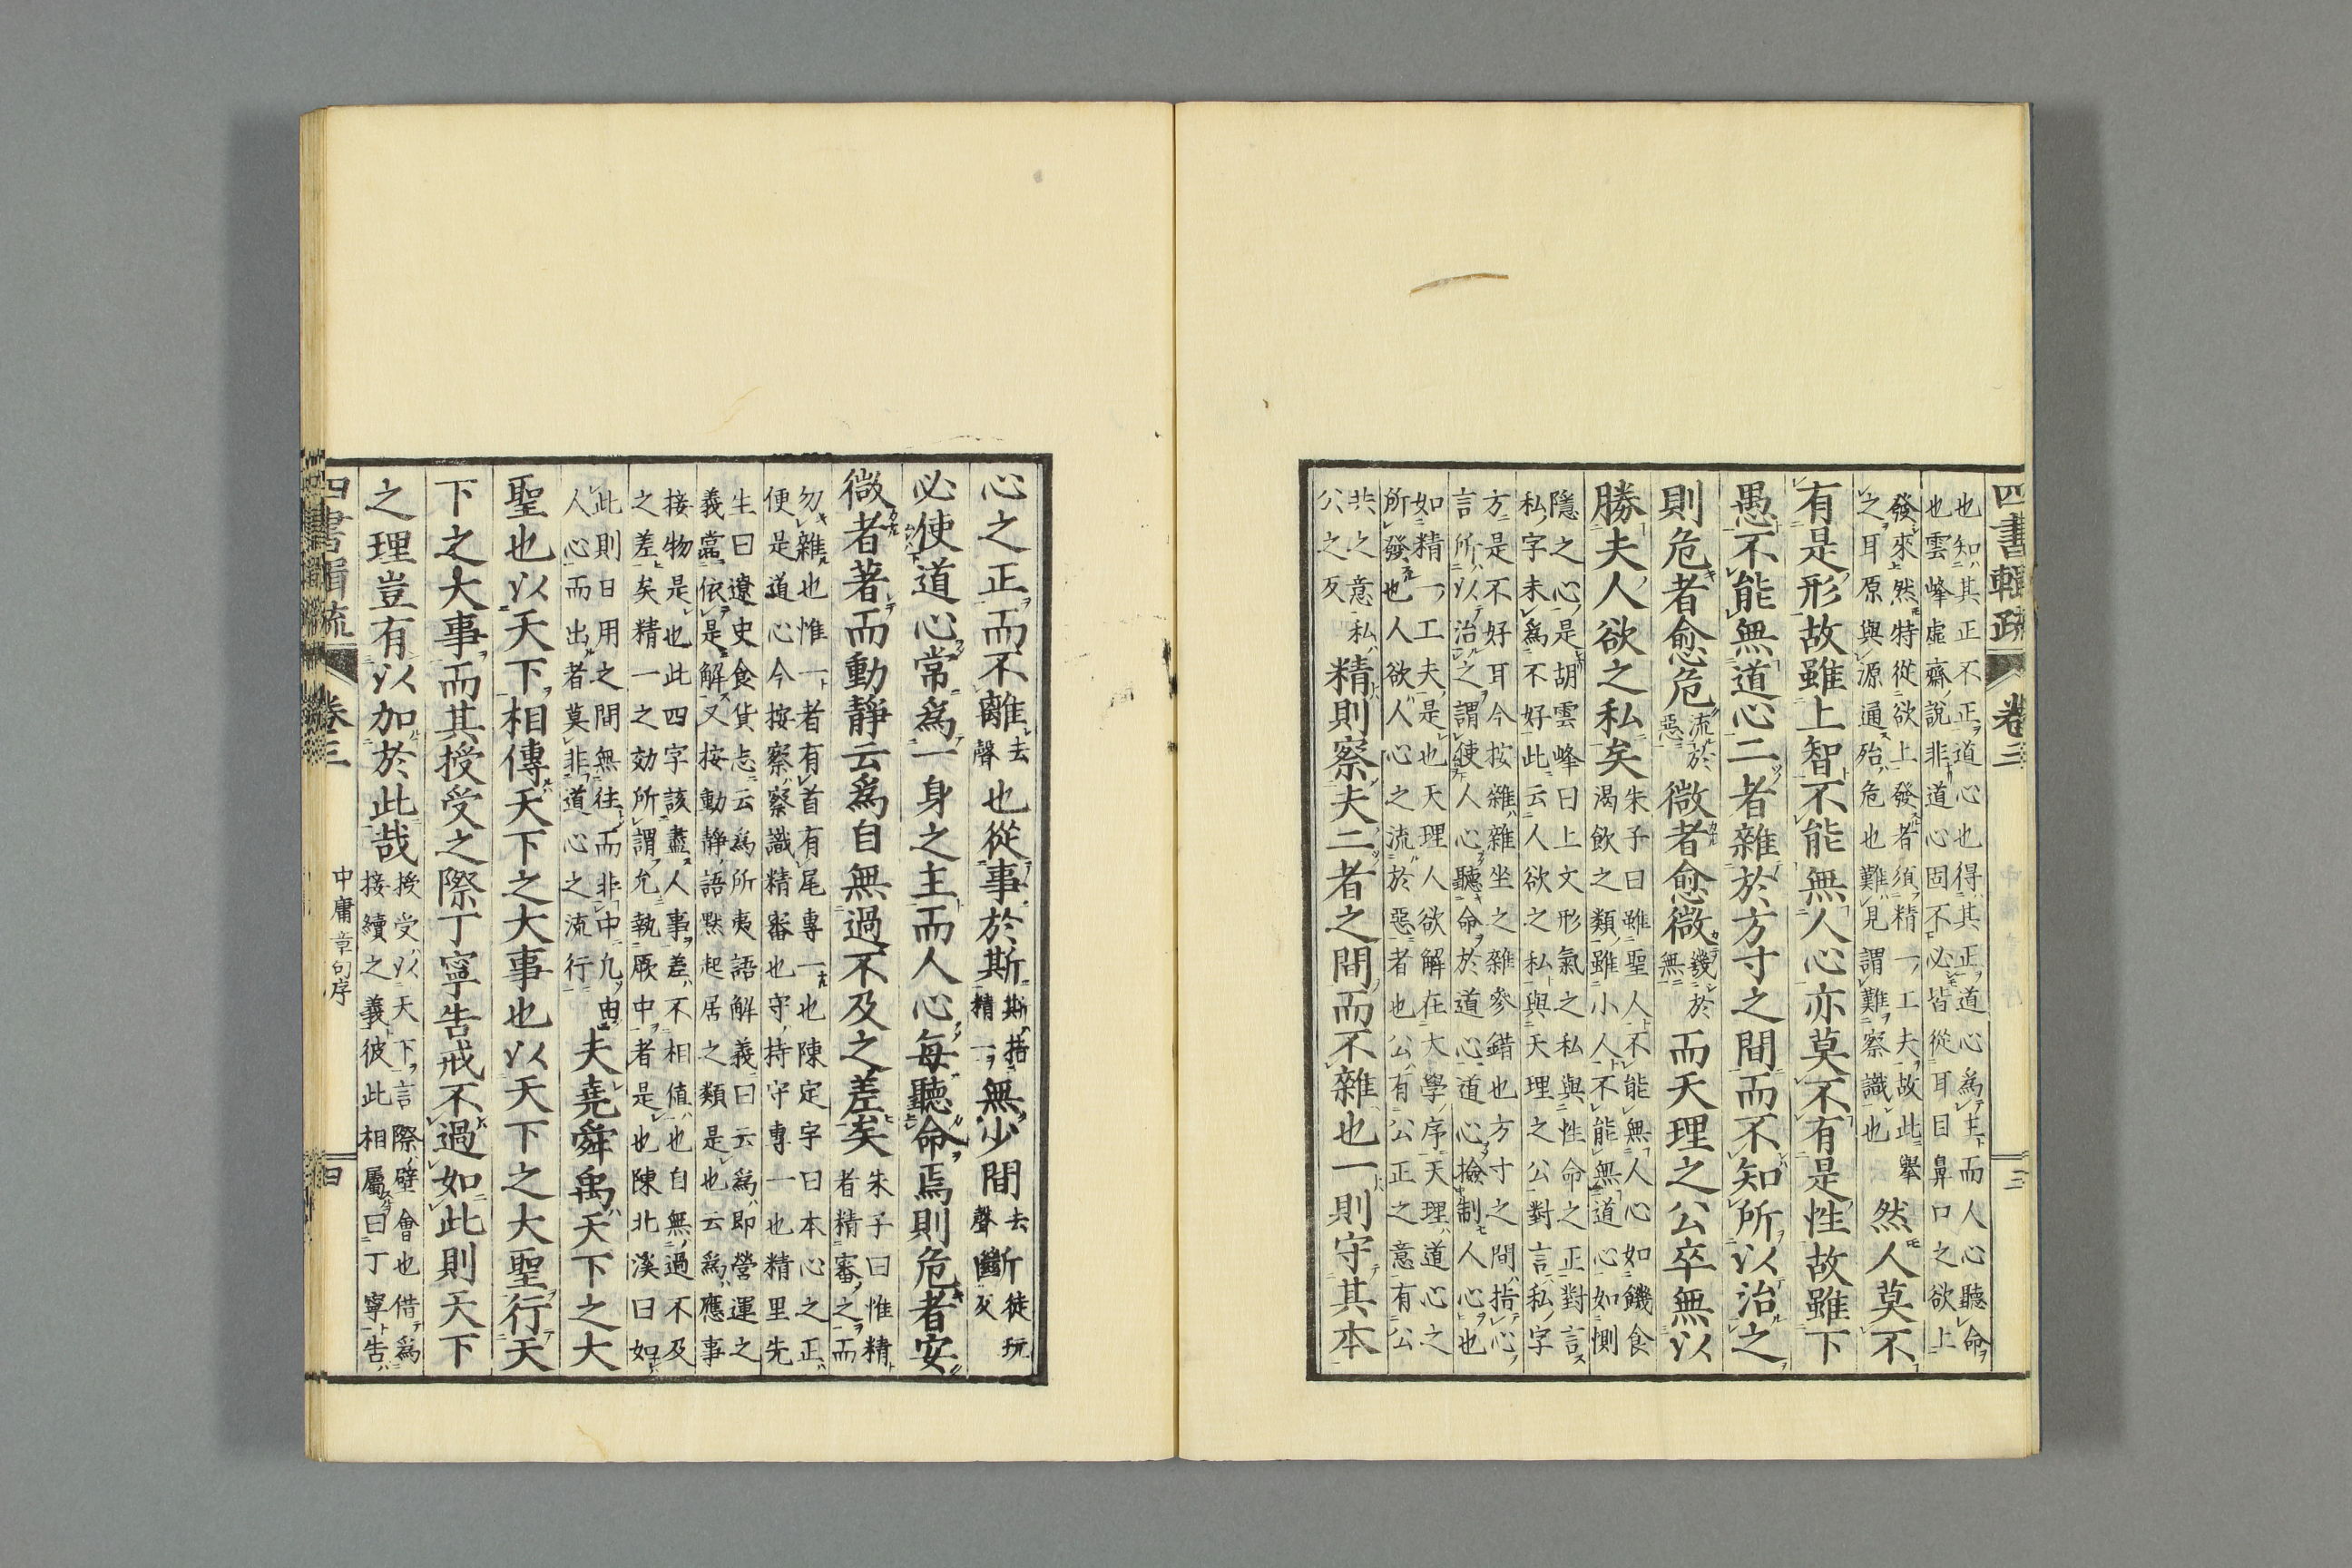 四書輯疏 卷三 三
也知其正不正道心也得其正道心爲主而人心聽命
也雲峰虛齋說非道心固不必皆從耳目鼻口之欲上
發來然特從欲上發者須精一工夫故此舉
之耳原與源通殆危也難見謂難察識也
然人莫不
有是形故雖上智不能無人心亦莫不有是性故雖下
愚不能無道心二者雜於方寸之間而不知所以治之
則危者愈危
流於
惡
微者愈微
幾於
無
而天理之公卒無以
勝夫人欲之私矣
朱子曰雖聖人不能無人心如饑食
渴飲之類雖小人不能無道心如惻
隱之心是胡雲峰曰上文形氣之私與性命之正對言
私字未爲不好此云人欲之私與天理之公對言私字
方是不好耳今按雜雜坐之雜參錯也方寸之間指心
言所以治之謂使人心聽命於道心道心檢制人心也
如精一工夫是也天理人欲解在大學序天理道心之
所發也人欲人心之流於惡者也公有公正之意有公
共之意私
公之反
精則察夫二者之間而不雜也一則守其本
心之正而不離
去
聲
也從事於斯
斯指
精一
無少間
去
聲
斷
徒玩
反
必使道心常爲一身之主而人心每聽命焉則危者安
微者著而動靜云爲自無過不及之差矣
朱子曰惟精
者精審之而
勿雜也惟一者有首有尾專一也陳定宇曰本心之正
便是道心今按察察識精審也守持守專一也精里先
生曰遼史食貨志云爲所夷語解義曰云爲即營運之
義當依是解又按動靜語默起居之類是也云爲應事
接物是也此四字該盡人事差不相値也自無過不及
之差矣精一之効所謂允執厥中者是也陳北溪曰如
此則日用之間無往而非中凢由
人心而出者莫非道心之流行
夫堯舜禹天下之大
聖也以天下相傳天下之大事也以天下之大聖行天
下之大事而其授受之際丁寧告戒不過如此則天下
之理豈有以加於此哉
授受以天下言際璧會也借爲
接續之義彼此相屬曰丁寧告
四書輯疏 卷三 中庸章句序 四